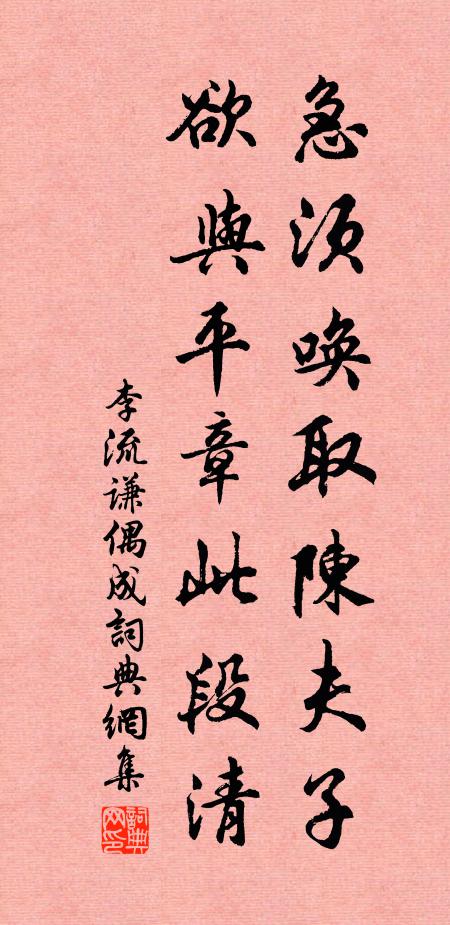 急须唤取陳夫子
欲與平章此段清
李流谦偶成詞典網集
詞典網印